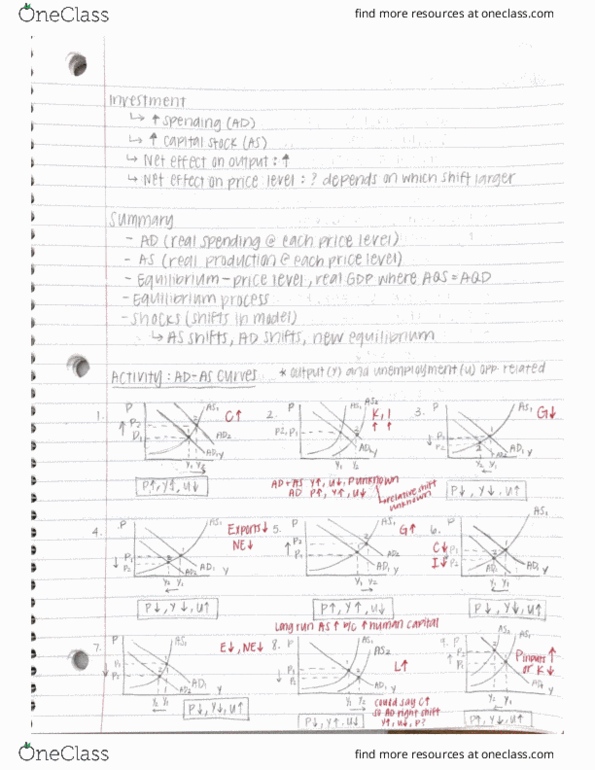 OneClass
find more resources at oneclass.com
Investment
↳ ↑ spending (AD)
↳ ↑ capital stock (AS)
↳ Net effect on output: ↑
↳ Net effect on price level: ? depends on which shift larger
Summary
- AD (real spending @ each price level)
- AS (real production @ each price level)
- Equilibrium - price level, real GDP where AQS = AQD
- Equilibrium process
- Shocks (shifts in model)
↳ AS shifts, AD shifts, new equilibrium
Activity: AD-AS Curves * output (Y) and unemployment (u) opp. related
1. P AS1 C↑
↑ P2
P1
AD2
AD1 Y
Y1 Y2
P↑, Y↑, u↓
2. P AS1 AS2 K, I
↑ ↑
P2, P1
AD2
AD1 Y
Y1 Y2
AD+AS Y↑, u↓, P unknown
AD P↑, Y↑, u↓
↳ relative shift unknown
3. P AS1 G↓
↓ P1
P2
AD1 Y
AD2
Y2 Y1
P↓, Y↓, u↑
4. P AS1 Exports↓
NE↓
P1
↓ P2
AD1 Y
Y2 Y1
P↓, Y↓, u↑
5. P AS1 G↑
↑
AD2
AD1 Y
Y1 Y2
P↑, Y↑, u↓
6. P AS1
C↓ P1
I↓ P2
AD1
Y2 Y1
P↓, Y↓, u↑
Long run AS↑ b/c ↑ human capital
7. P AS1 E↓, NE↓
P1
↓ P2
AD1
AD2 Y
Y2 Y1
P↓, Y↓, u↑
8. P AS1
AS2
L↑
P1
↓ P2
AD1
Y1 Y2
P↓, Y↑, u↓
could say C↑
so AD right shift
Y↑, u↓, P?
9. P AS2 AS1
P inputs ↑
or K↓
P2
↑ P1
Y2 Y1
P↑, Y↓, u↑
OneClass
find more resources at oneclass.com